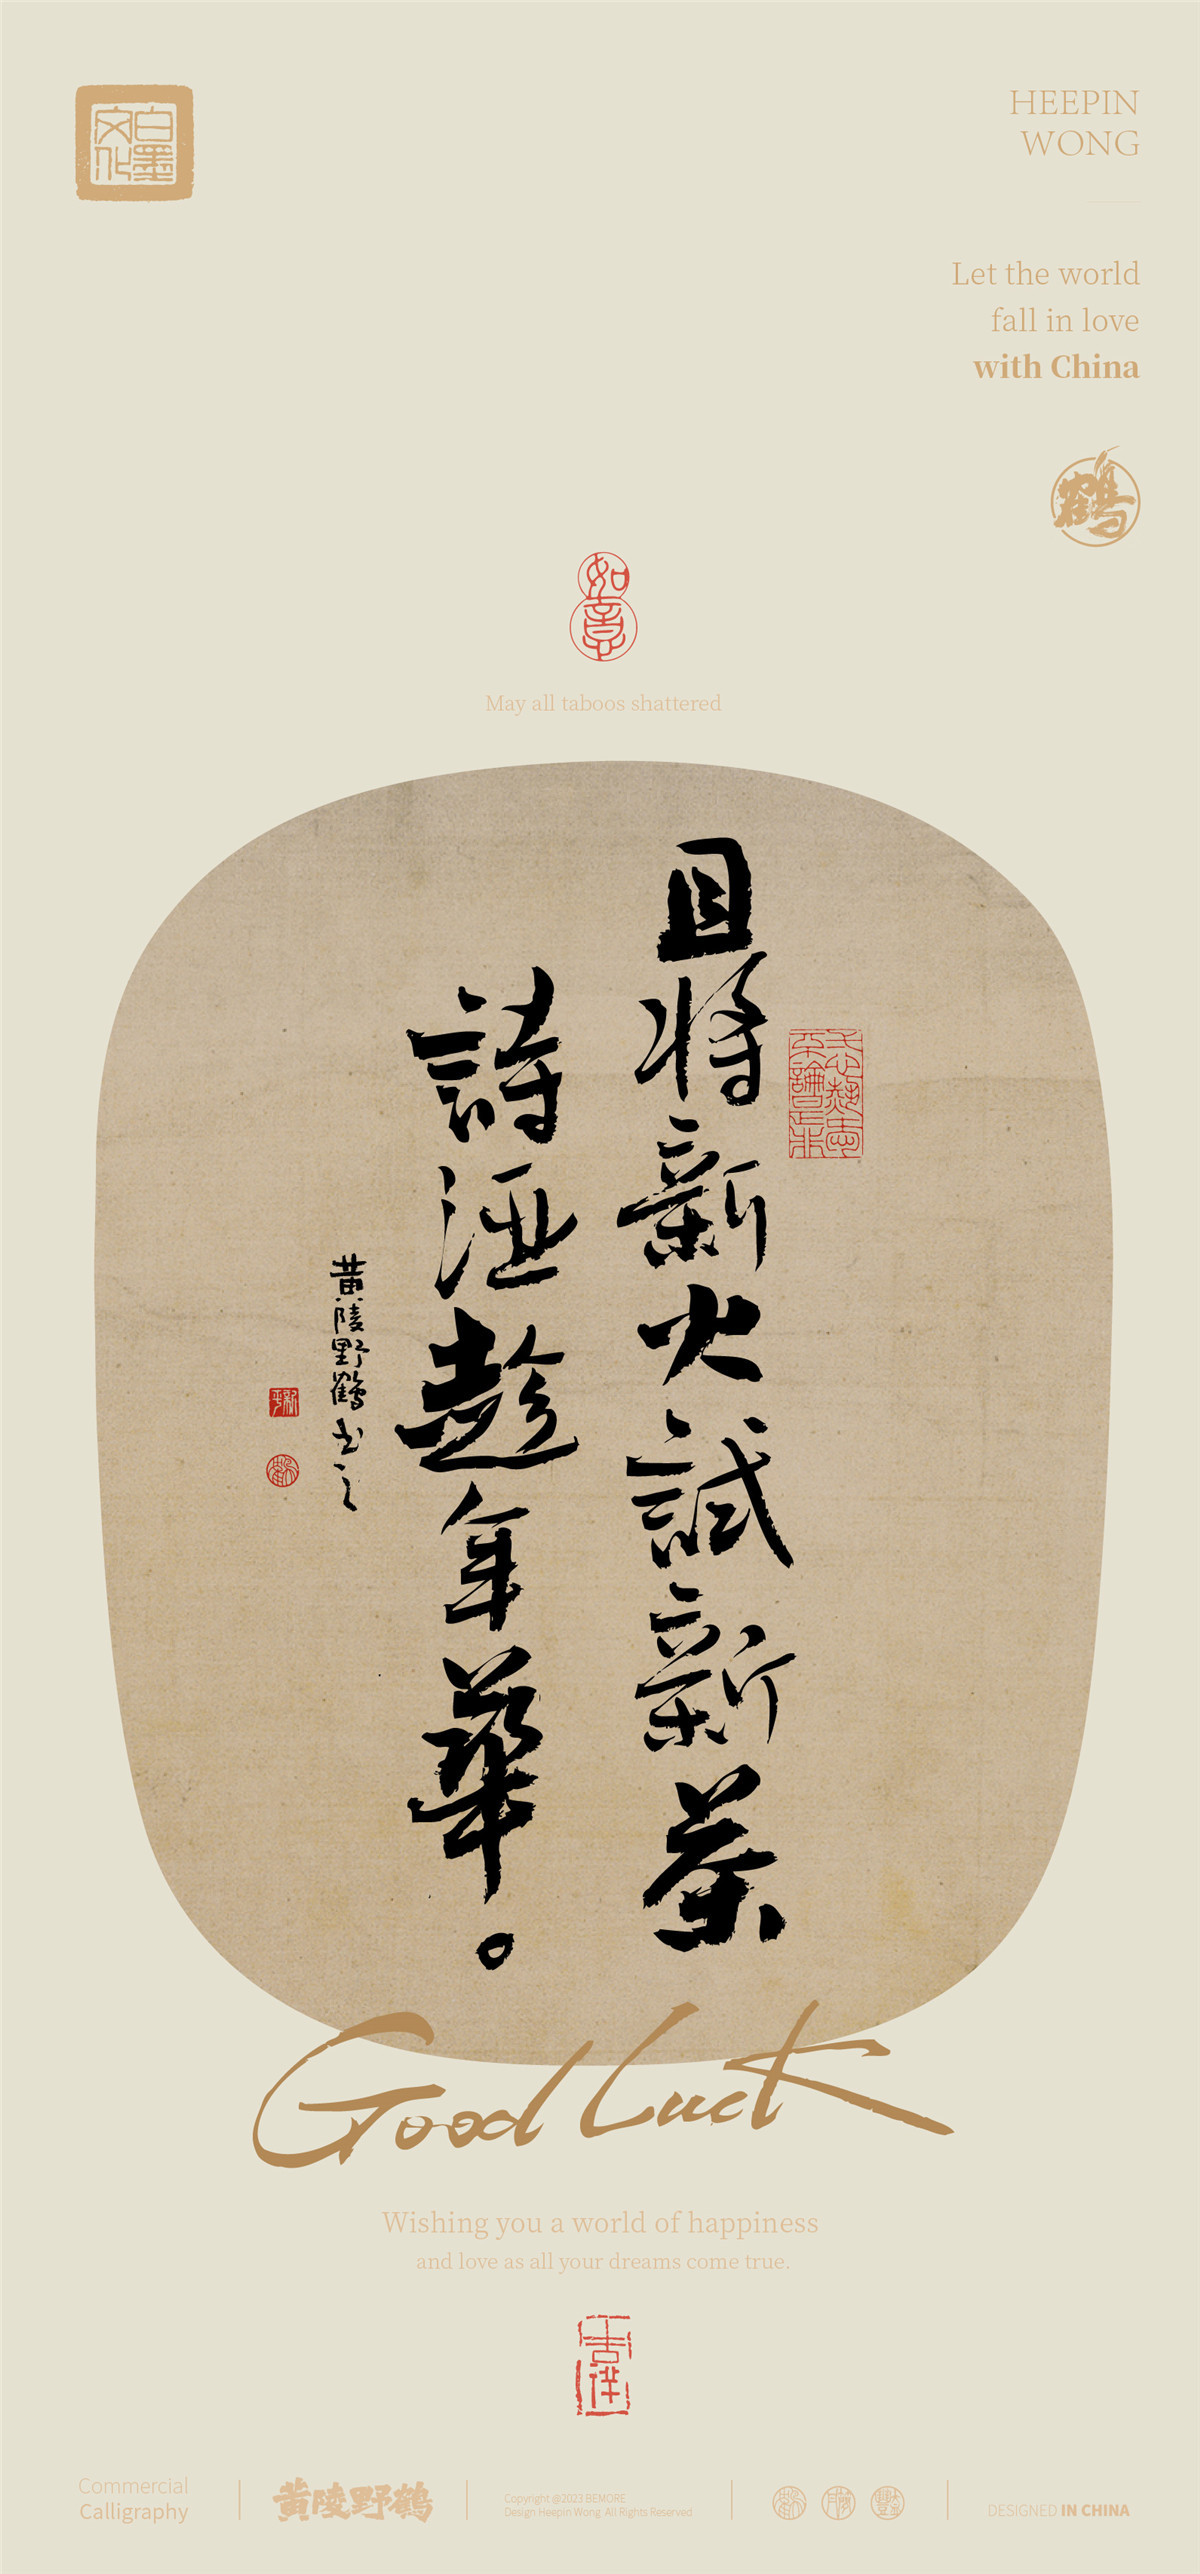 白墨
文化
HEEPIN
WONG
Let the world
fall in love
with China
鶴
如意
May all taboos shattered
且将新火試新茶
詩酒趁年華。
黄陵野鶴书之
Good Luck
Wishing you a world of happiness
and love as all your dreams come true.
吉祥
Commercial
Calligraphy
黄陵野鶴
Copyright @2023 BEMORE
Design Heepin Wong. All Rights Reserved
DESIGNED IN CHINA